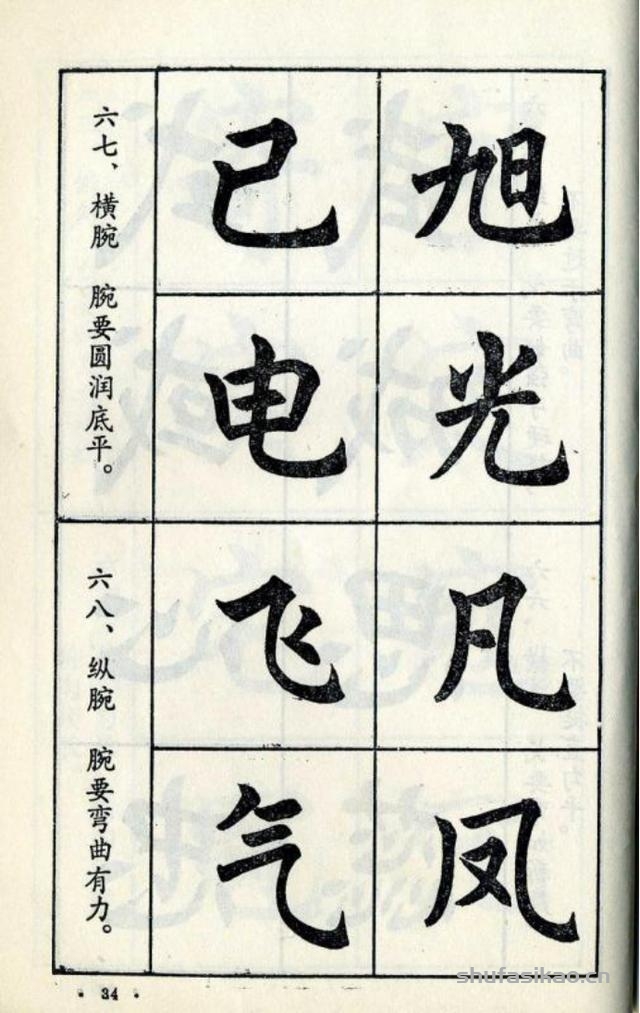 六七、 横腕 腕要圆润底平。
己 旭
电 光
六八、 纵腕 腕要弯曲有力。
飞 凡
气 凤
· 34 ·
shufasikao.cn